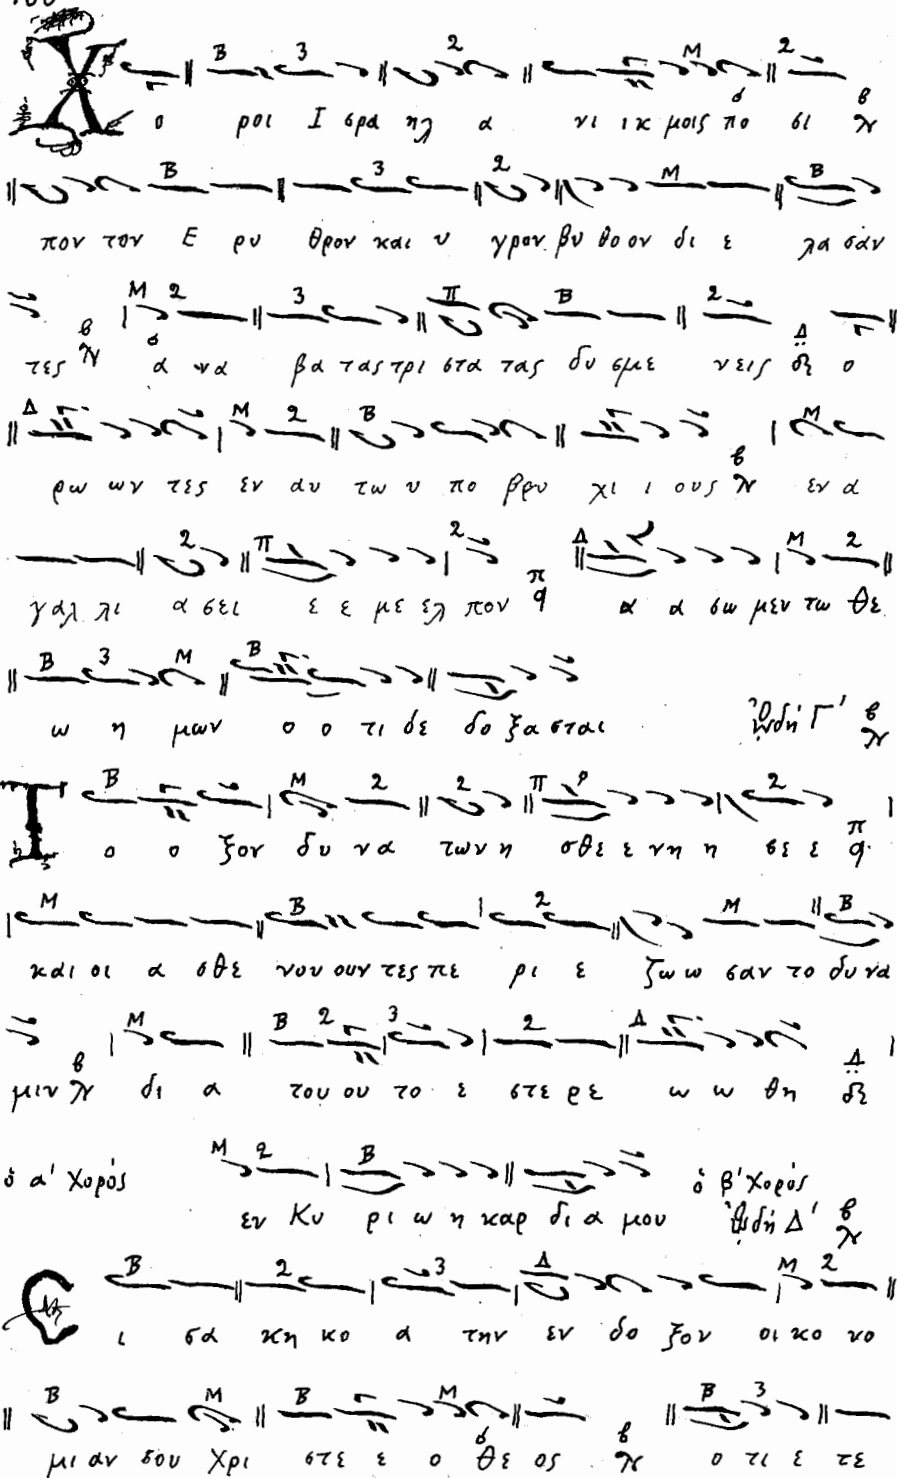 Χ ο ροι Ι σρα ηλ α νι ικ μοις πο σι
πον τον Ε ρυ θρον και υ γρον βυ θο ον δι ε λα σάν
τες α να βα τας τρι στα τας δυ σμε νεις ο
ρω ων τες εν αυ τω υ πο βρυ χι ι ους εν α
γαλ λι α σει ε ε με ελ πον α α σω μεν τω θε
ω η μων ο ο τι δε δο ξα σται ᾨδή Γ'
Τ ο ο ξον δυ να των η σθε ε νη η σε ε
και οι α σθε νου ουν τες πε ρι ε ζω ω σαν το δυ να
μιν δι α του ου το ε στε ρε ω ω θη
ὁ α' χορός ὁ β' χορός
εν Κυ ρι ω η καρ δι α μου ᾨδή Δ'
Ε ι σα κη κο α την εν δο ξον οι κο νο
μι αν σου Χρι στε ε ο θε ος ο τι ε τε